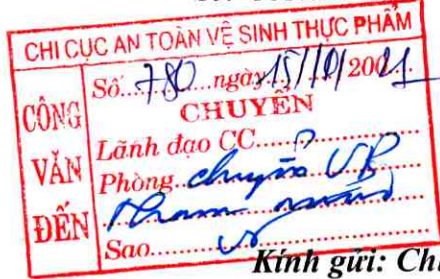 CHI CỤC AN TOÀN VỆ SINH THỰC PHẨM
CÔNG VĂN ĐẾN
Số...780...ngày 15/10/2021
CHUYỂN
Lãnh đạo CC
Phòng chuyên VP
Sao
Kính gửi: Ch